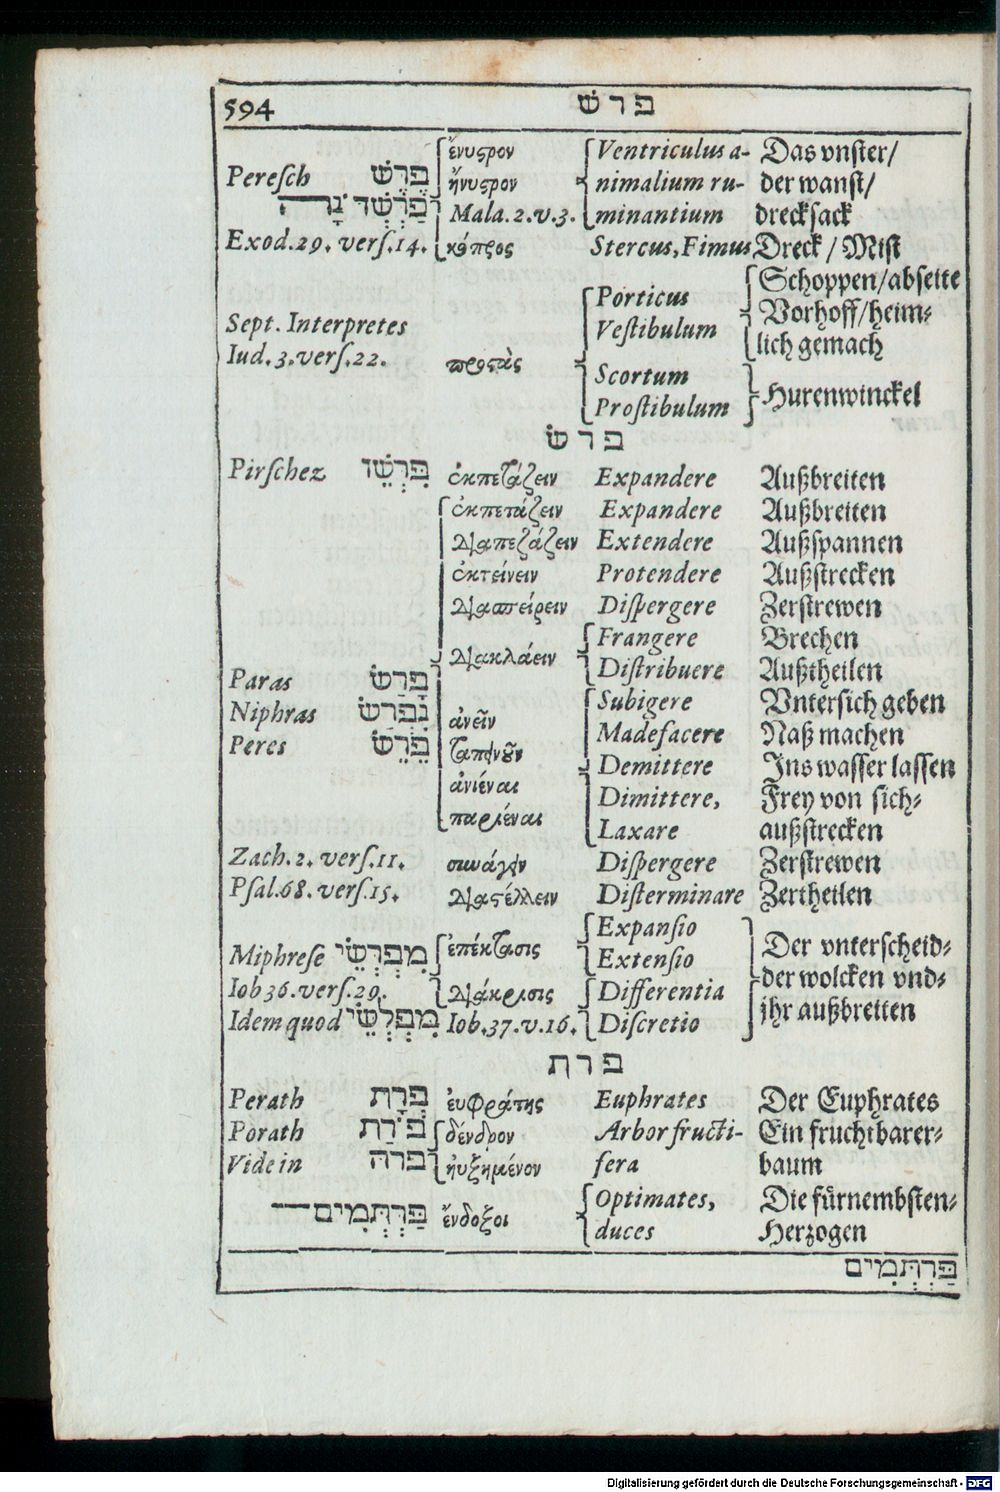 594 פרש
ἔνυςρον Ventriculus a- Das vnster/
Peresch פֶּרֶשׁ ἤνυςρον nimalium ru- der wanst/
Mala.2.v.3. minantium drecksack
Exod.29. vers.14. κόπρος Stercus, Fimus Dreck / Mist
Schoppen/abseite
Porticus Vorhoff/heim-
Sept. Interpretes Vestibulum
Iud.3.vers.22. προςὰς lich gemach
Scortum
Prostibulum Hurenwinckel
פרשׂ
Pirschez ἐκπετάζειν Expandere Außbreiten
ἐκπετάζειν Expandere Außbreiten
διαπετάζειν Extendere Außspannen
ἐκτείνειν Protendere Außstrecken
διασπείρειν Dispergere Zerstrewen
Frangere Brechen
διακλάειν Distribuere Außtheilen
Paras פָּרַשׂ Subigere Vntersich geben
Niphras נִפְרַשׂ ἀνεῖν Madefacere Naß machen
Peres פֵּרֵשׂ ταπεινοῦν Demittere Ins wasser lassen
ἀνιέναι Dimittere, Frey von sich-
παριέναι Laxare außstrecken
Zach.2. vers.11. συνάγειν Dispergere Zerstrewen
Psal.68. vers.15. διαςέλλειν Disterminare Zertheilen
Expansio
Miphrese מִפְרְשֵׂי ἐπέκτασις Extensio Der vnterscheid-
Iob 36.vers.29. διάκρισις Differentia der wolcken vnd-
Idem quod מִפְלְשֵׂי Iob.37.v.16. Discretio jhr außbreiten
פרת
Perath פְּרָת ἐυφράτης Euphrates Der Euphrates
Porath פֹּרָת δένδρον Arbor fructi- Ein fruchtbarer-
Vide in פרה ἠυξημένον fera baum
Optimates, Die fürnembsten-
פַּרְתְּמִים ἔνδοξοι duces Herzogen
פַּרְתְּמִים
Digitalisierung gefördert durch die Deutsche Forschungsgemeinschaft - DFG